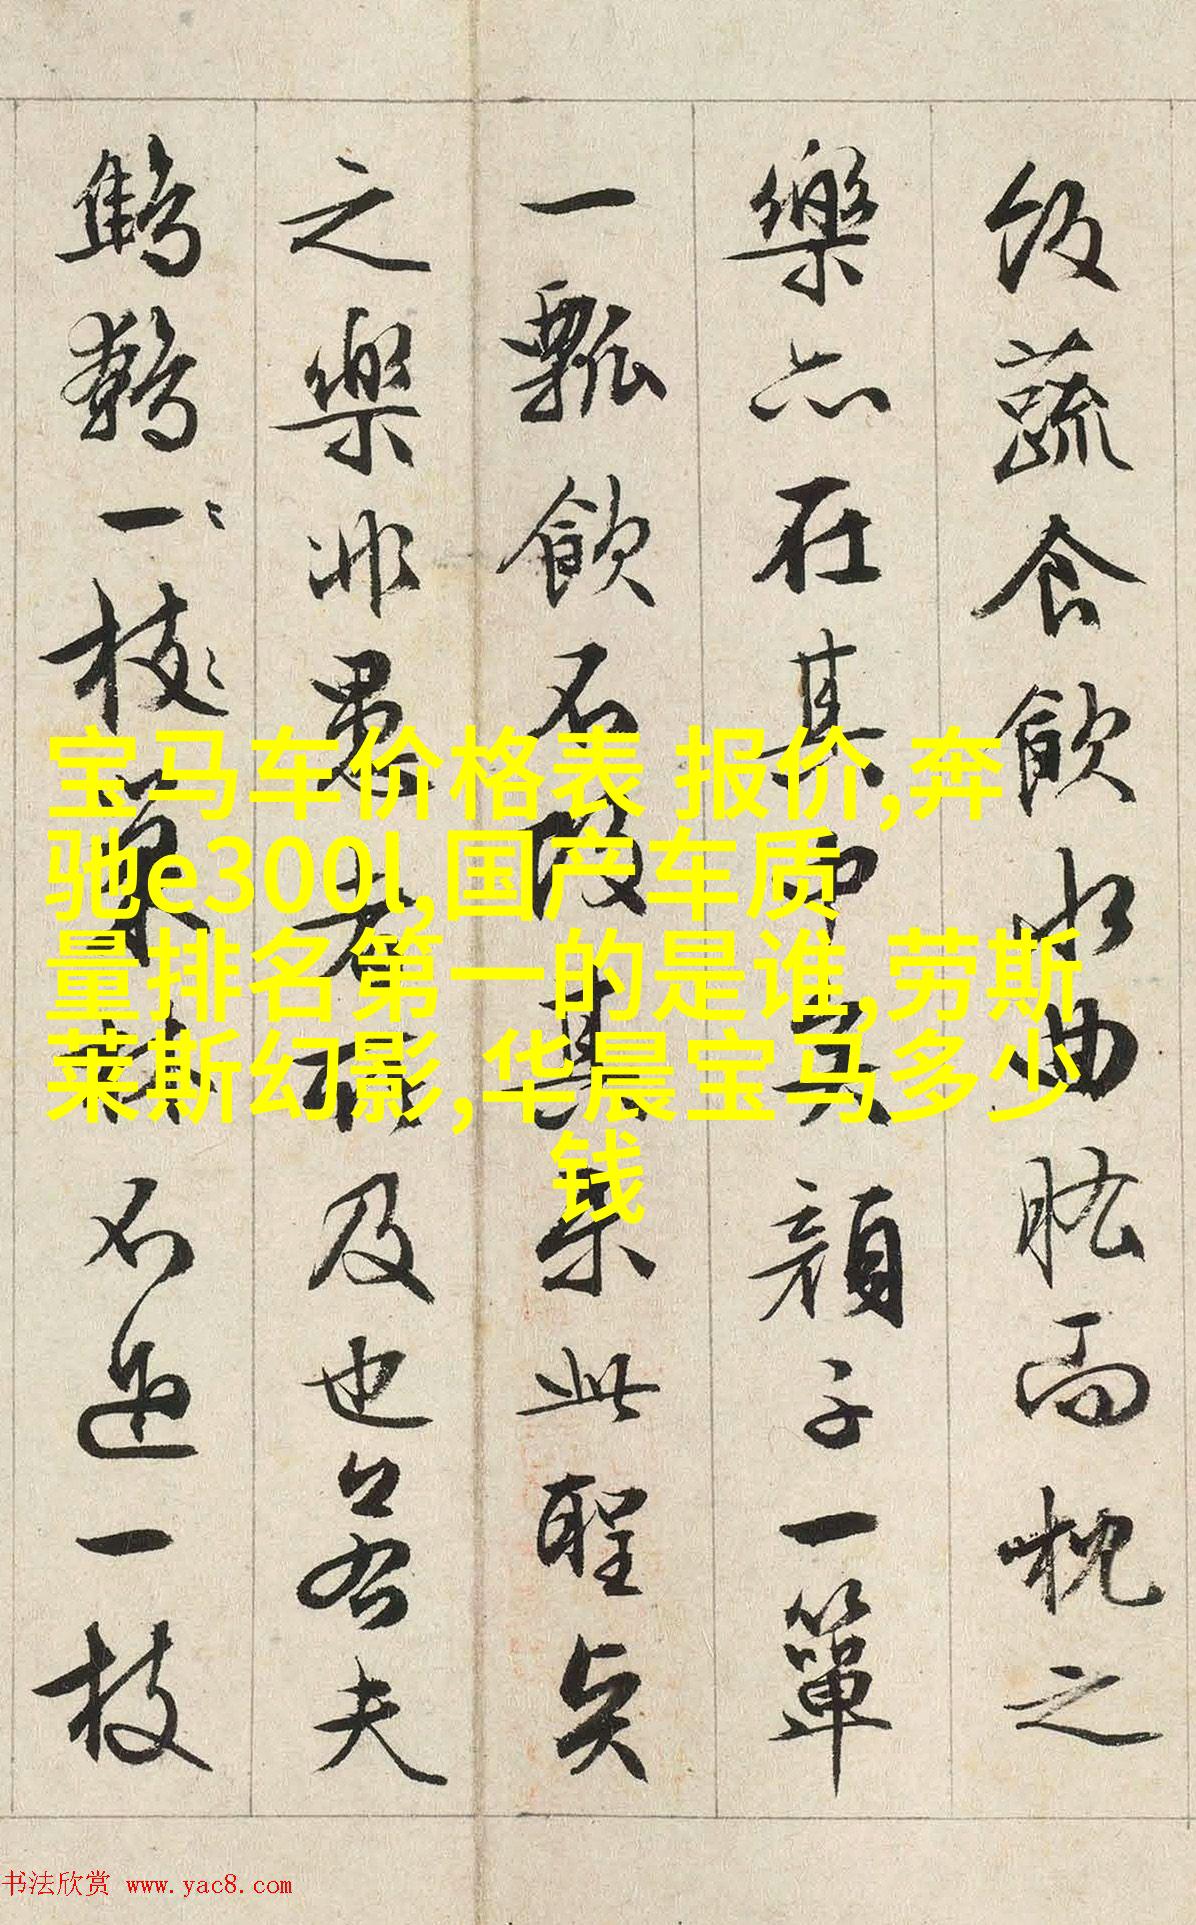 飯蔬食飲水曲肱而枕之
樂亦在其中矣顏子一簞
一瓢飲不改其樂此聖賢
之樂非愚者所及也若夫
鷦鷯一枝巢林不過一枝
宝马车价格表 报价,奔
驰e300l,国产车质
量排名第一的是谁,劳斯
莱斯幻影,华晨宝马多少
钱
书法欣赏 www.yac8.com